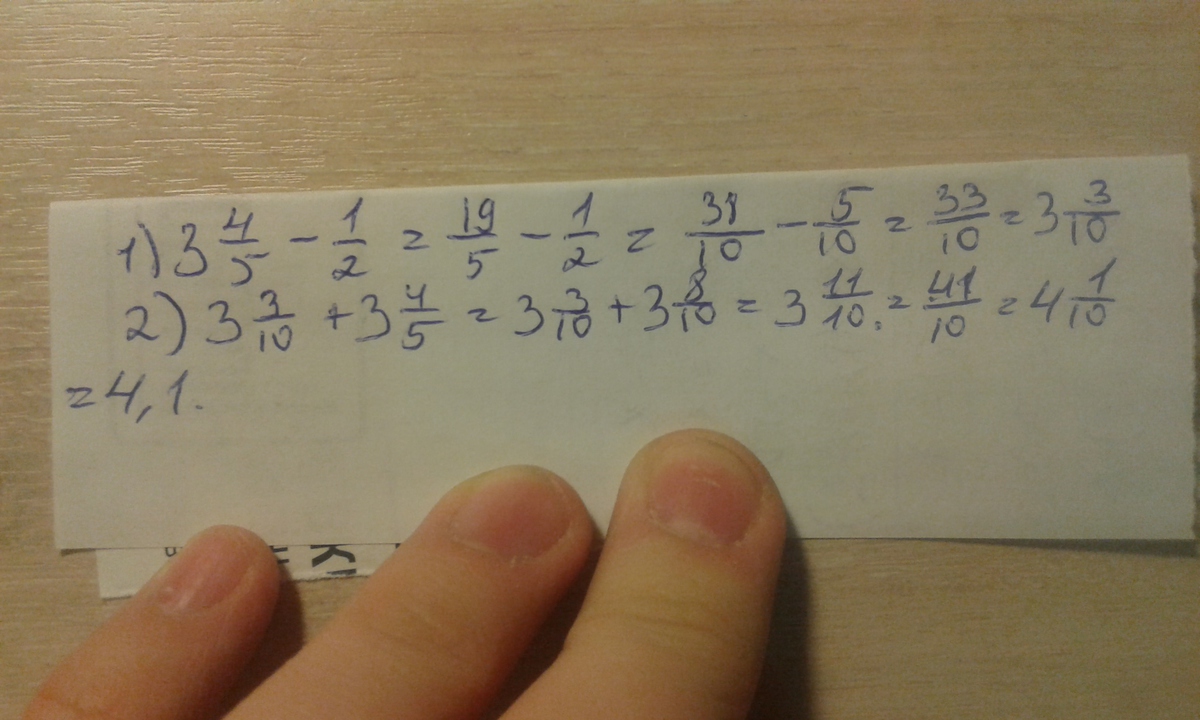 1) 3 4/5 - 1/2 = 19/5 - 1/2 = 38/10 - 5/10 = 33/10 = 3 3/10
2) 3 3/10 + 3 4/5 = 3 3/10 + 3 8/10 = 3 11/10. = 41/10 = 4 1/10
= 4,1.